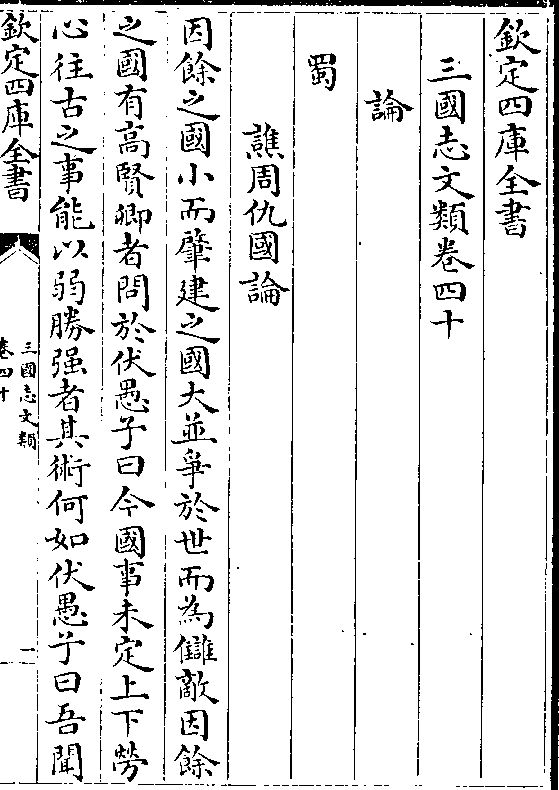 欽定四庫全書
三國志文類卷四十
論
蜀
譙周仇國論
因餘之國小而肇建之國大並爭於世而為讎敵因餘
之國有高賢卿者問於伏愚子曰今國事未定上下勞
心往古之事能以弱勝强者其術何如伏愚子曰吾聞
欽定四庫全書
三國志文類
卷四十
一